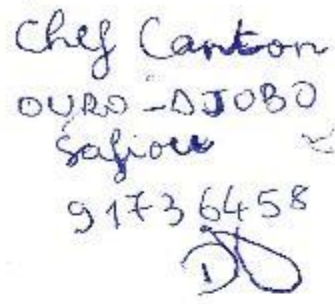 Chef Canton
OURO-DJOBO
Safiou
91736458